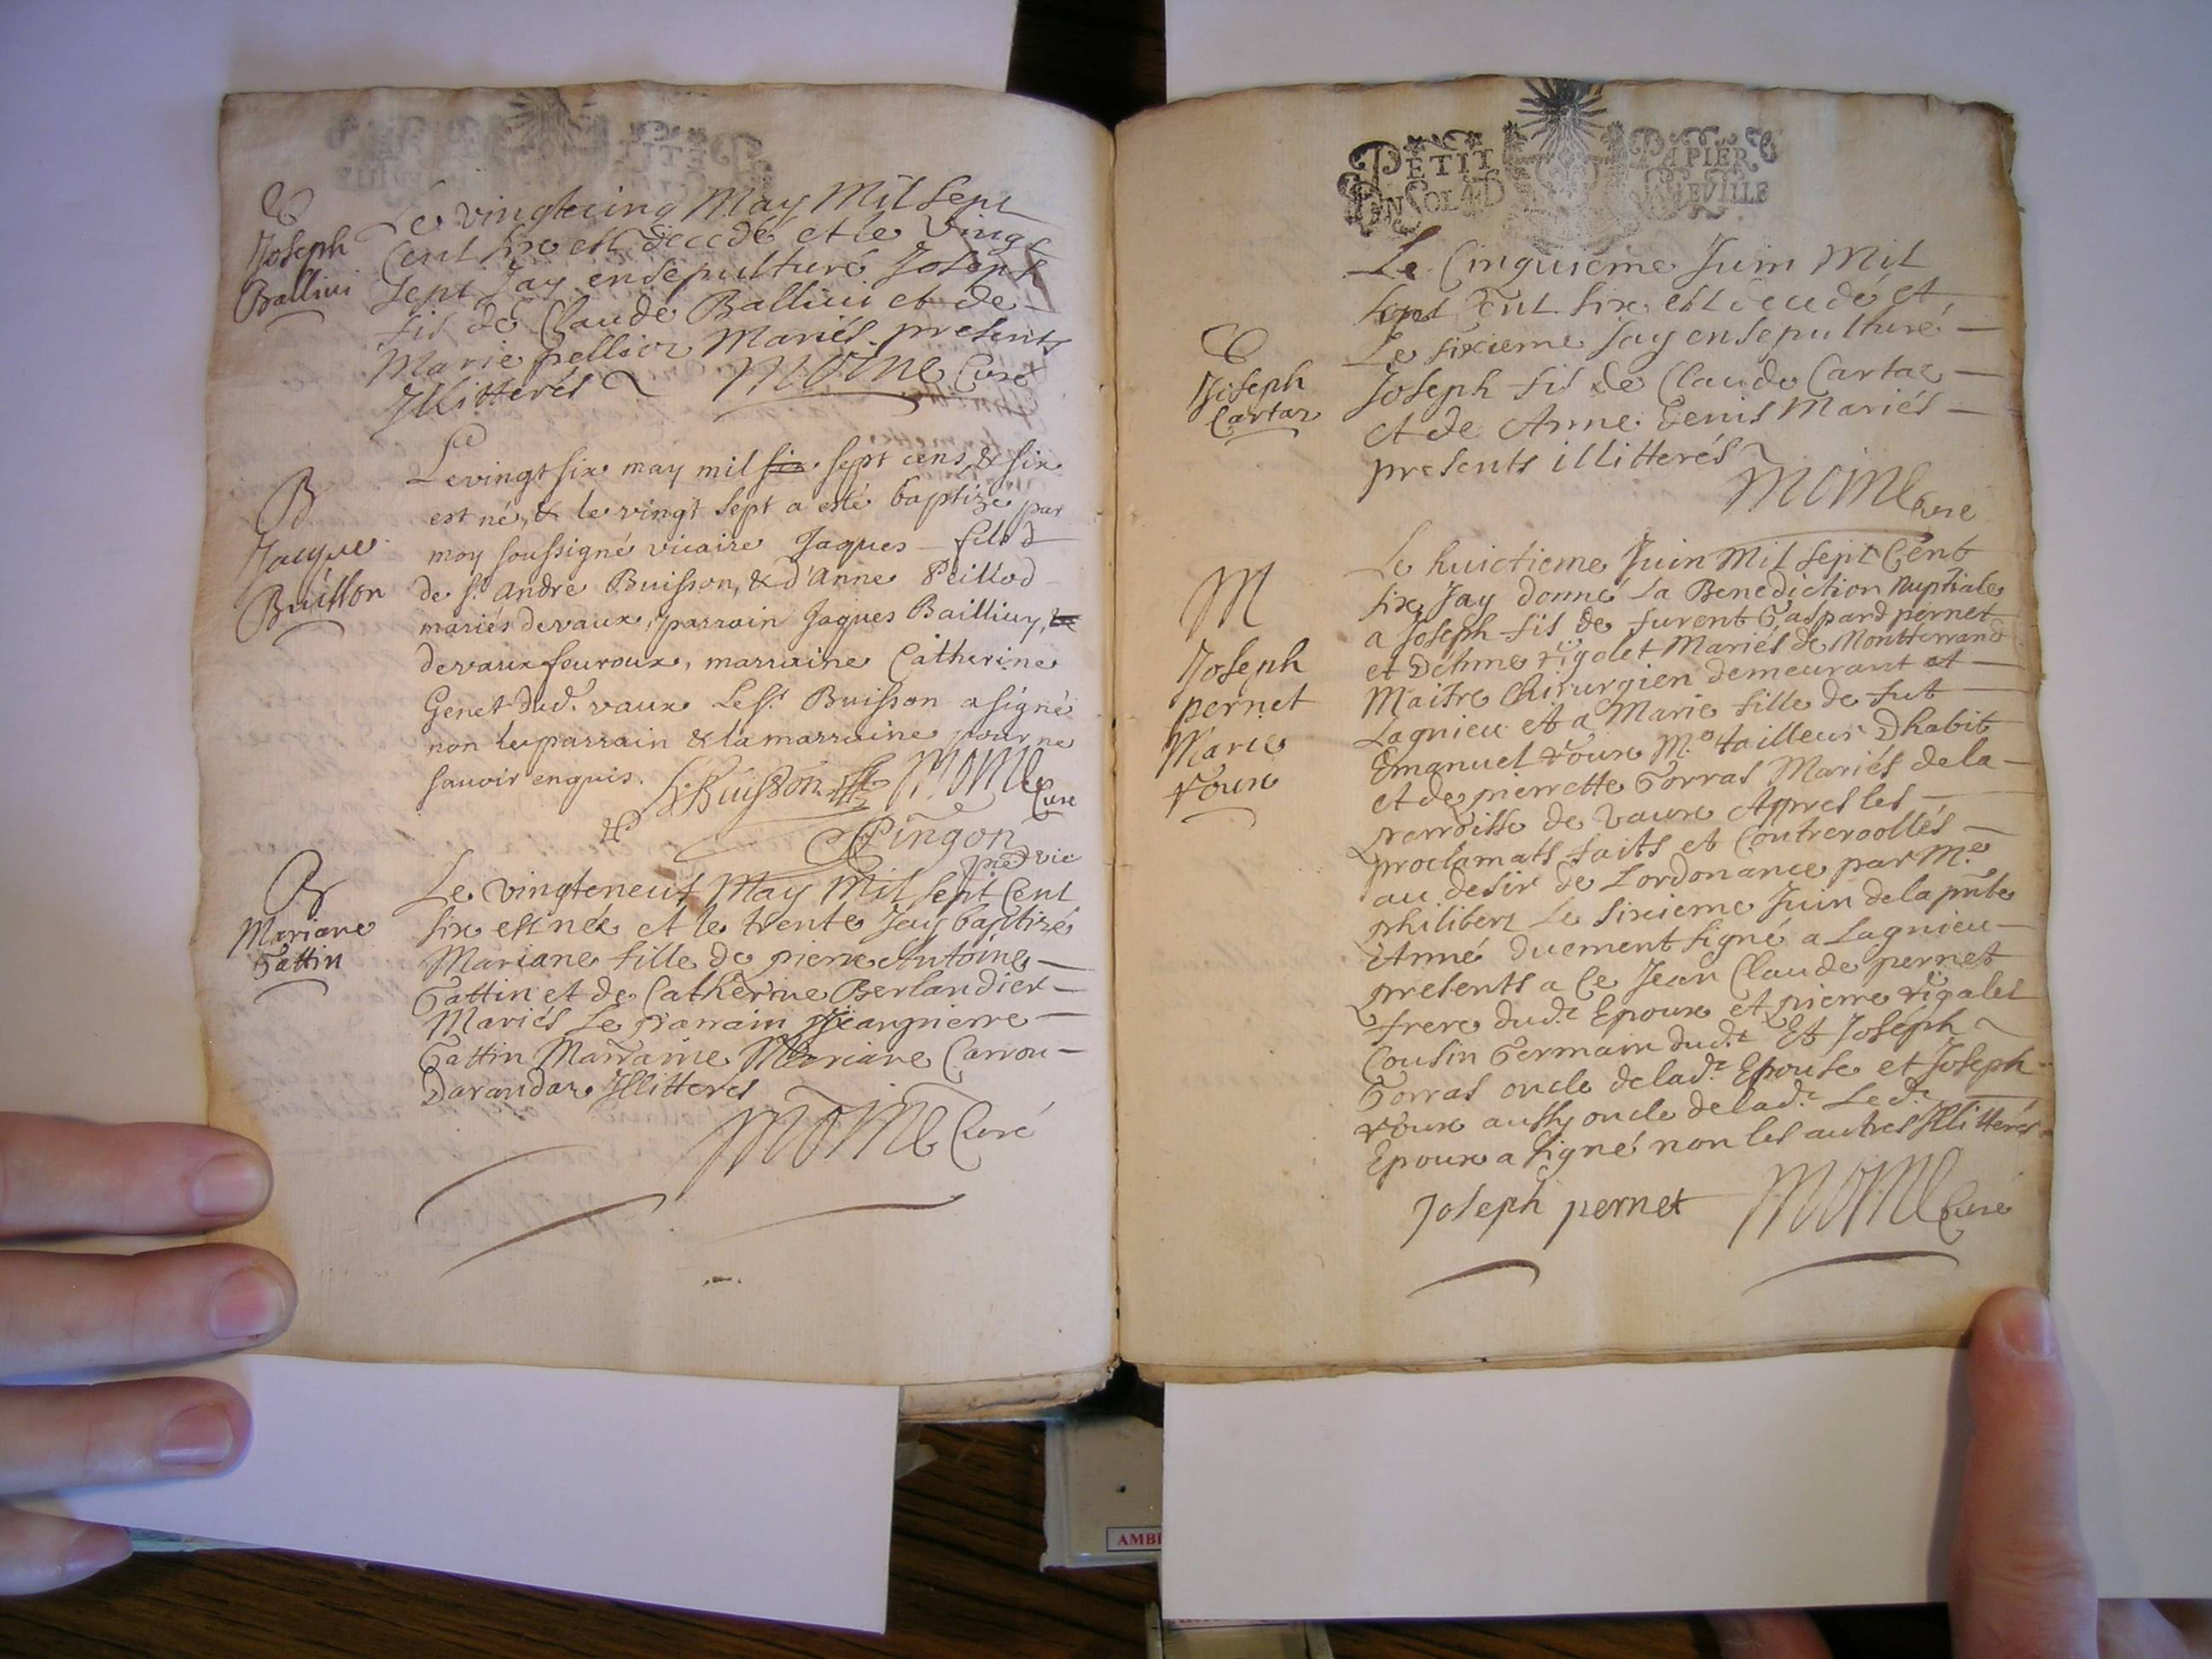 E
Joseph
Ballivi
Le vingtecinq May Mil Sept
Cent six est decedé et le Vingt
Sept Jay ensepulturé Joseph
fis de Claude Ballivi et de
Marie pellior Mariés presents
Illitterés Moine Curé
B
Jacque
Buisson
Le vingt six may mil six sept cens & six
est né, & le vingt sept a esté baptizé par
moy soussigné vicaire Jaques fils d
de sr. andre Buisson, & d'Anne Peillod
mariés de vaux, parrain Jaques Bailliuy, &
de vaux feuroux, marraine Catherine
Genet dud. vaux Le sr. Buisson a signé
non le parrain & la marraine pour ne
sauoir enquis. Buisson Moine
Curé
Pingon
pre vic
B
Mariane
Gattin
Le vingteneuf May Mil Sept Cent
six est née et le trente Jay baptizé
Mariane fille de pierre Antoine
Gattin et de Catherine Berlandier
Mariés Le parrain Jeanpierre
Gattin Marraine Mariane Carron
Darandaz Illitterés
Moine Curé
PETIT PAPIER
EN SOLD LA FEVILLE
E
Joseph
Cartaz
Le Cinquieme Juin Mil
sept Cent six est decedé et
Le sixieme Jay ensepulturé
Joseph fis de Claude Cartaz
et de Anne Genis Mariés
presents illitterés
Moine Curé
M
Joseph
pernet
Marie
roux
Le huictieme Juin Mil Sept Cent
six Jay donné la Benediction nuptiale
a Joseph fis de furent Gaspard pernet
et Dethme rigolet Mariés de Montferrand
Maitre Chirurgien demeurant et
Lagnieu et a Marie fille de fut
Emanuel roux Me tailleur Dhabit
et de pierrette Gorras Mariés de la
parroisse de vaux Appres les
proclamats faits et Controroollés
au desir de Lordonance par Me
philibert Le sixieme Juin de la pnte
Anné duement signé a Lagnieu
presents a Ce Jean Claude pernet
frere dud.t Epoux et pierre rigolet
Cousin Germain dud.t Et Joseph
Gorras oncle de lad.te Epouse et Joseph
roux aussy oncle de lad.te Led.t
Epoux a signé non les autres Illitterés
Joseph pernet Moine Curé
AMB